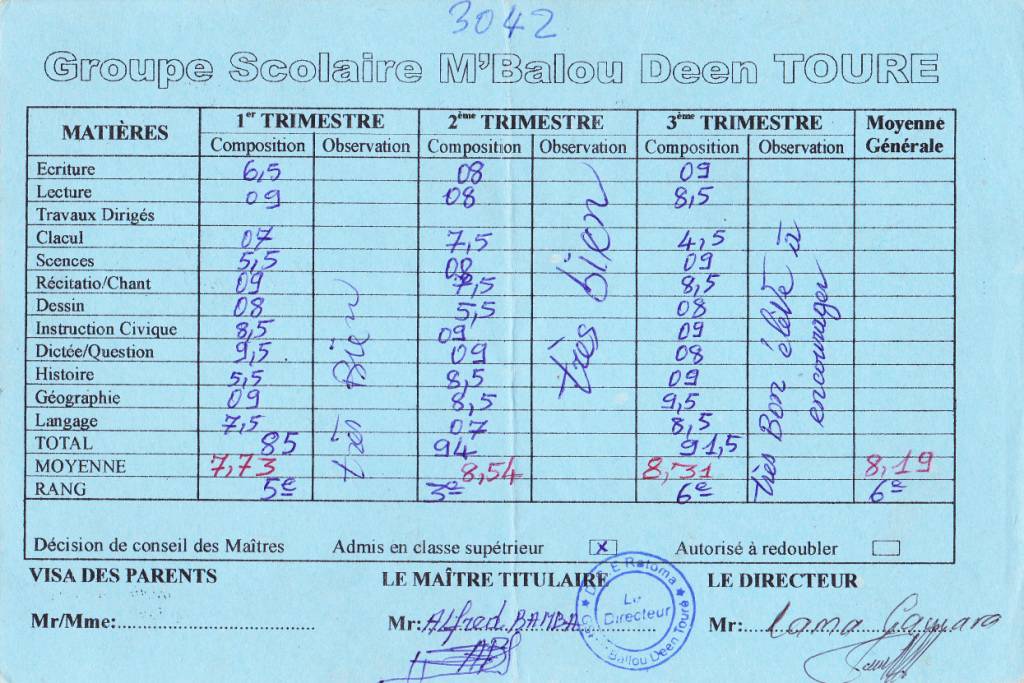 3042
Groupe Scolaire M'Balou Deen TOURE
MATIÈRES 1er TRIMESTRE 2ème TRIMESTRE 3ème TRIMESTRE Moyenne Générale
Composition Observation Composition Observation Composition Observation
Ecriture 6,5 08 09
Lecture 09 08 8,5
Travaux Dirigés
Clacul 07 7,5 4,5
Scences 5,5 08 09
Récitatio/Chant 09 7,5 8,5
Dessin 08 5,5 08
Instruction Civique 8,5 09 09
Dictée/Question 9,5 09 08
Histoire 5,5 8,5 09
Géographie 09 8,5 9,5
Langage 7,5 07 8,5
TOTAL 85 94 91,5
MOYENNE 7,73 8,54 8,31 8,19
RANG 5e 3e 6e 6e
très Bien
très bien
très Bon élève à
encourager
Décision de conseil des Maîtres Admis en classe supétrieur x Autorisé à redoubler
VISA DES PARENTS LE MAÎTRE TITULAIRE LE DIRECTEUR
Mr/Mme: Mr: Alfred BAMBA Mr: Lama Gamara
E Ratoma
Le
Directeur
Balou Deen Touré